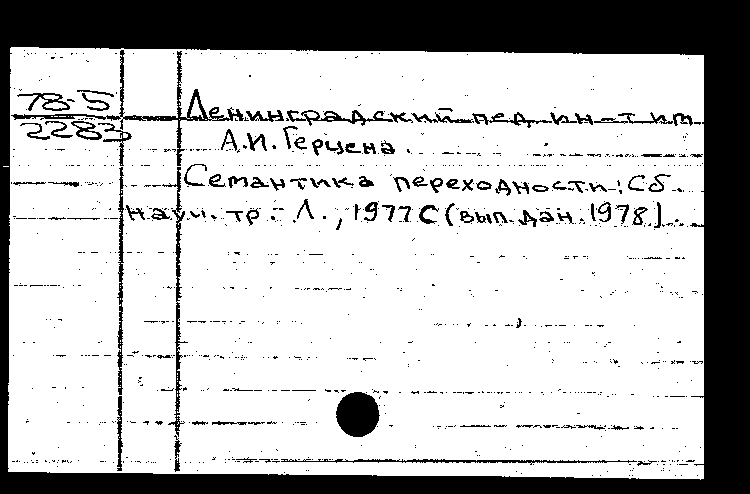 78-5
2283
Ленинградский пед. ин-т им.
А.И. Герцена.
Семантика переходности: Сб.
науч. тр.- Л., 1977 С (вып. дан. 1978).